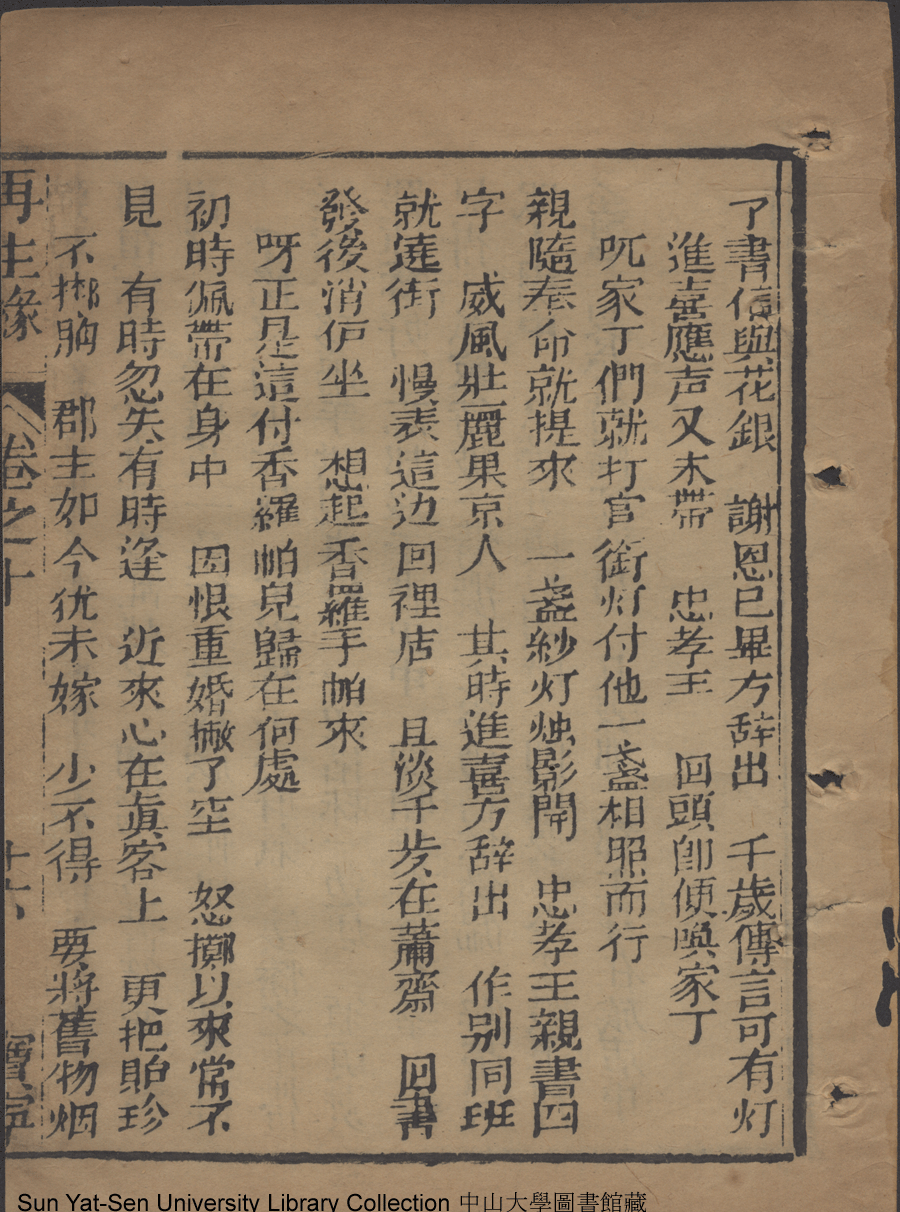 了書信與花銀　謝恩已畢方辞出　千歲傳言可有灯
進喜應声又未帶　忠孝王　回頭即便喚家丁
呒家丁們就打官銜灯付他一盞相照而行
親隨奉命就提來　一盞紗灯烛影開　忠孝王親書四
字　威風壯麗果京人　其時進喜方辞出　作别同班
就莛街　慢表這边回裡店　且淡千步在蕭齋　回書
發後消停坐　想起香羅手帕來
呀正是這付香羅帕皃歸在何處
初時佩帶在身中　因恨重婚撇了空　怒擲以來常不
見　有時忽失有時逢　近來心在真容上　更把貽珍
不掷胸　郡主如今犹未嫁　少不得　要將舊物烟
再生緣　卷之十　十六　寶寧
Sun Yat-Sen University Library Collection 中山大學圖書館藏